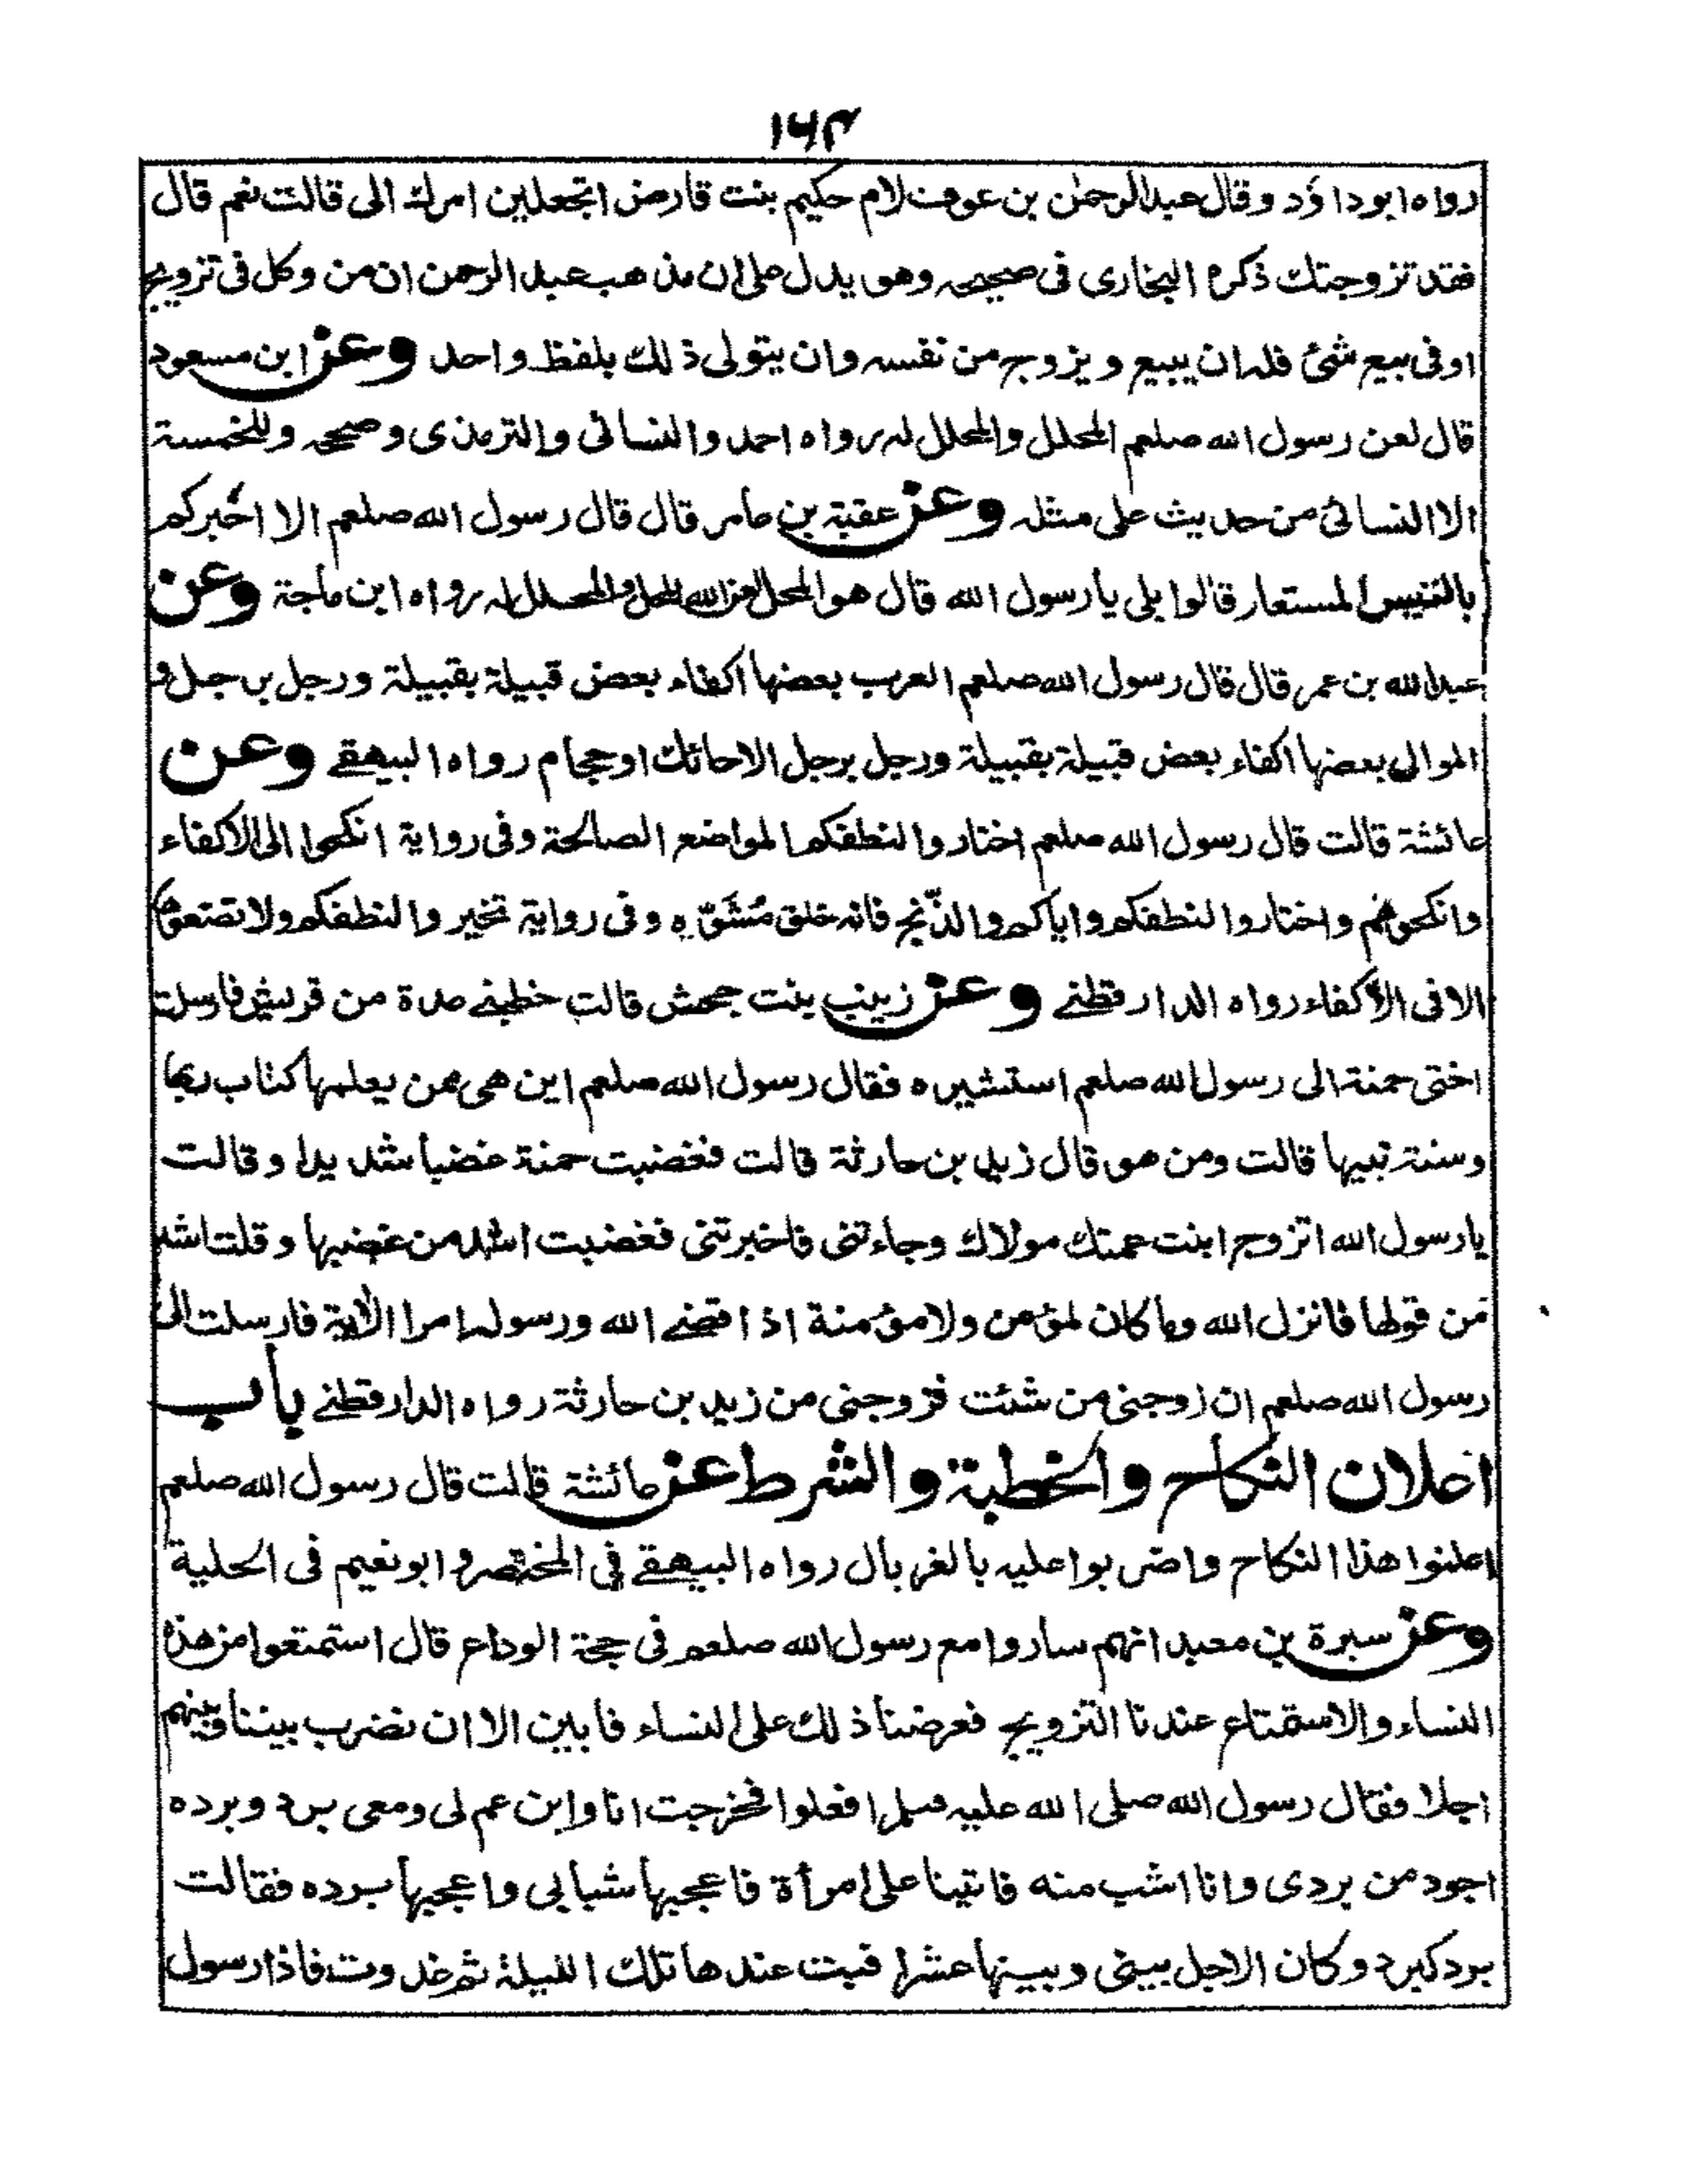 ۱۶۴
رواه ابوداؤد وقال عبدالرحمٰن بن عوف لام حكيم بنت قارض اتجعلين امرك الى قالت نعم قال
فقد تزوجتك ذكره البخارى فى صحيحه وهو يدل على ان مذهب عبد الرحمن ان من وكل فى تزويج
اوفى بيع شئ فله ان يبيع ويزوج من نفسه وان يتولى ذلك بلفظ واحد وعن ابن مسعود
قال لعن رسول الله صلعم المحلل والمحلل له رواه احمد والنسائى والترمذى وصححه وللخمسة
الا النسائى من حديث على مثله وعن عقبة بن عامر قال قال رسول الله صلعم الا اخبركم
بالتيس المستعار قالوا بلى يا رسول الله قال هو المحل لعن الله المحل والمحلل له رواه ابن ماجة وعن
عبدالله بن عمر قال قال رسول الله صلعم العرب بعضها اكفاء بعض قبيلة بقبيلة ورجل برجل و
الموالى بعضها اكفاء بعض قبيلة بقبيلة ورجل برجل الا حائك او حجام رواه البيهقے وعن
عائشة قالت قال رسول الله صلعم اختاروا لنطفكم المواضع الصالحة وفى رواية انكحوا الى الاكفاء
وانكحوهم واختاروا لنطفكم واياكم والزنج فانه خلق مشوه وفى رواية تخيروا لنطفكم ولا تضعوها
الا فى الاكفاء رواه الدارقطنے وعن زينب بنت جحش قالت خطبنے عدة من قريش فارسلت
اختى حمنة الى رسول الله صلعم استشيره فقال رسول الله صلعم اين هى ممن يعلمها كتاب ربها
وسنة نبيها قالت ومن هو قال زيد بن حارثة قالت فغضبت حمنة غضبا شديدا وقالت
يا رسول الله اتزوج ابنت عمتك مولاك وجاءتنى فاخبرتنى فغضبت اشد من غضبها وقلت اشد
من قولها فانزل الله وما كان لمؤمن ولا مؤمنة اذا قضے الله ورسوله امرا الاية فارسلت الى
رسول الله صلعم ان زوجنى من شئت فزوجنى من زيد بن حارثة رواه الدارقطنے باب
اعلان النكاح والخطبة والشرط عن عائشة قالت قال رسول الله صلعم
اعلنوا هذا النكاح واضربوا عليه بالغربال رواه البيهقے فى المختصر وابو نعيم فى الحلية
وعن سبرة بن معبد انهم ساروا مع رسول الله صلعم فى حجة الوداع قال استمتعوا من هذه
النساء والاستمتاع عندنا التزويج فعرضنا ذلك على النساء فابين الا ان نضرب بيننا وبينهم
اجلا فقال رسول الله صلى الله عليه وسلم افعلوا فخرجت انا وابن عم لى ومعى برد وبرده
اجود من بردى وانا اشب منه فاتينا على امرأة فاعجبها شبابى واعجبها برده فقالت
برد كبرد وكان الاجل بينى وبينها عشرا فبت عندها تلك الليلة ثم غدوت فاذا رسول